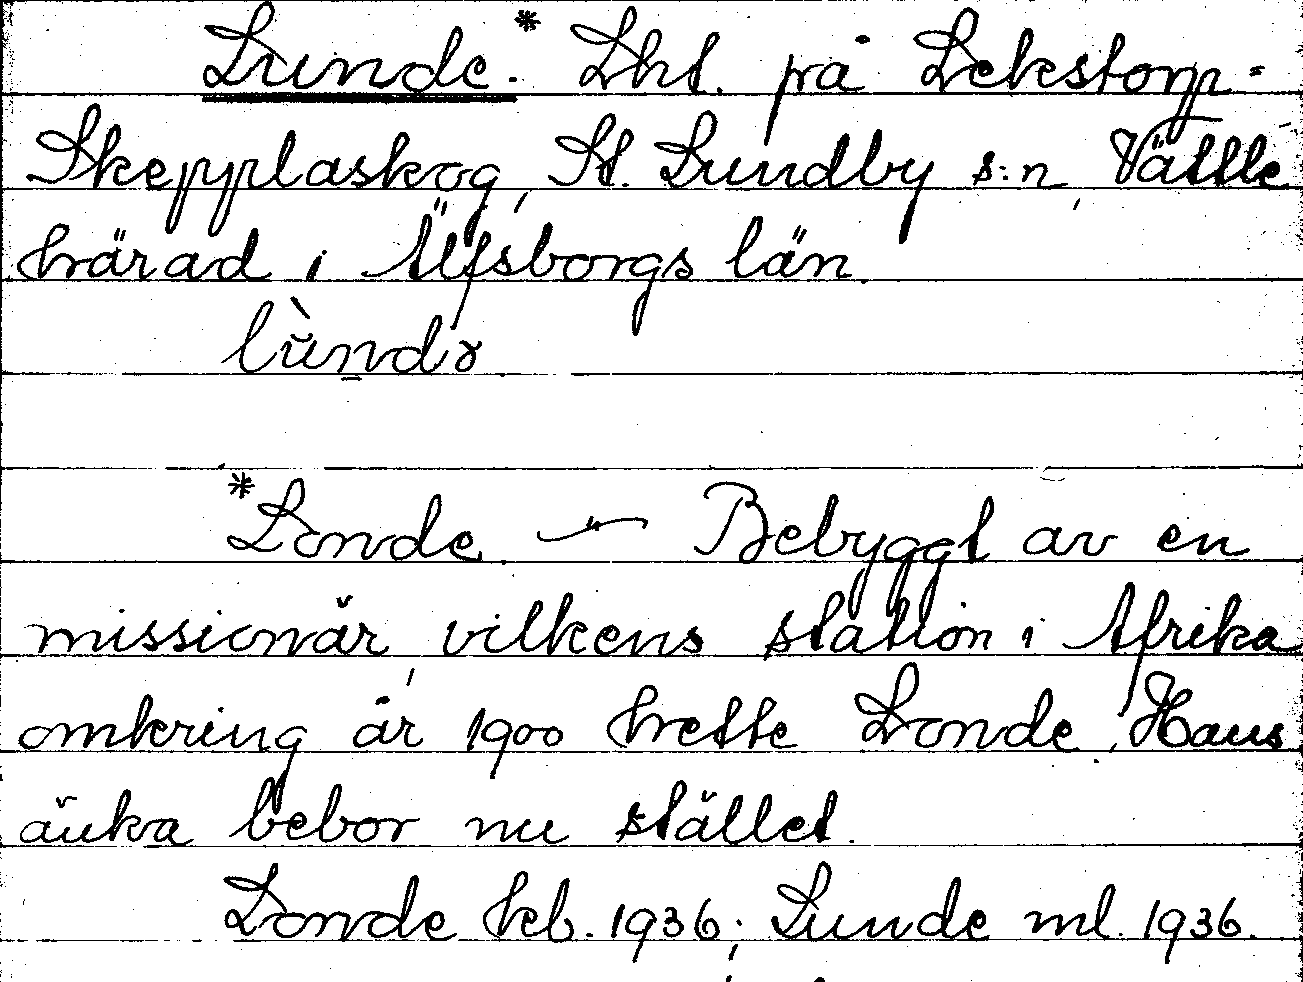 Lunde.* Lht. på Lekstorp-
Skepplaskog, St. Lundby s:n, Vättle
härad i Älfsborgs län.
lùndɤ
*Londe — Bebyggt av en
missionär, vilkens station i Afrika
omkring år 1900 hette Londe. Hans
änka bebor nu stället.
Londe kb. 1936; Lunde ml. 1936.